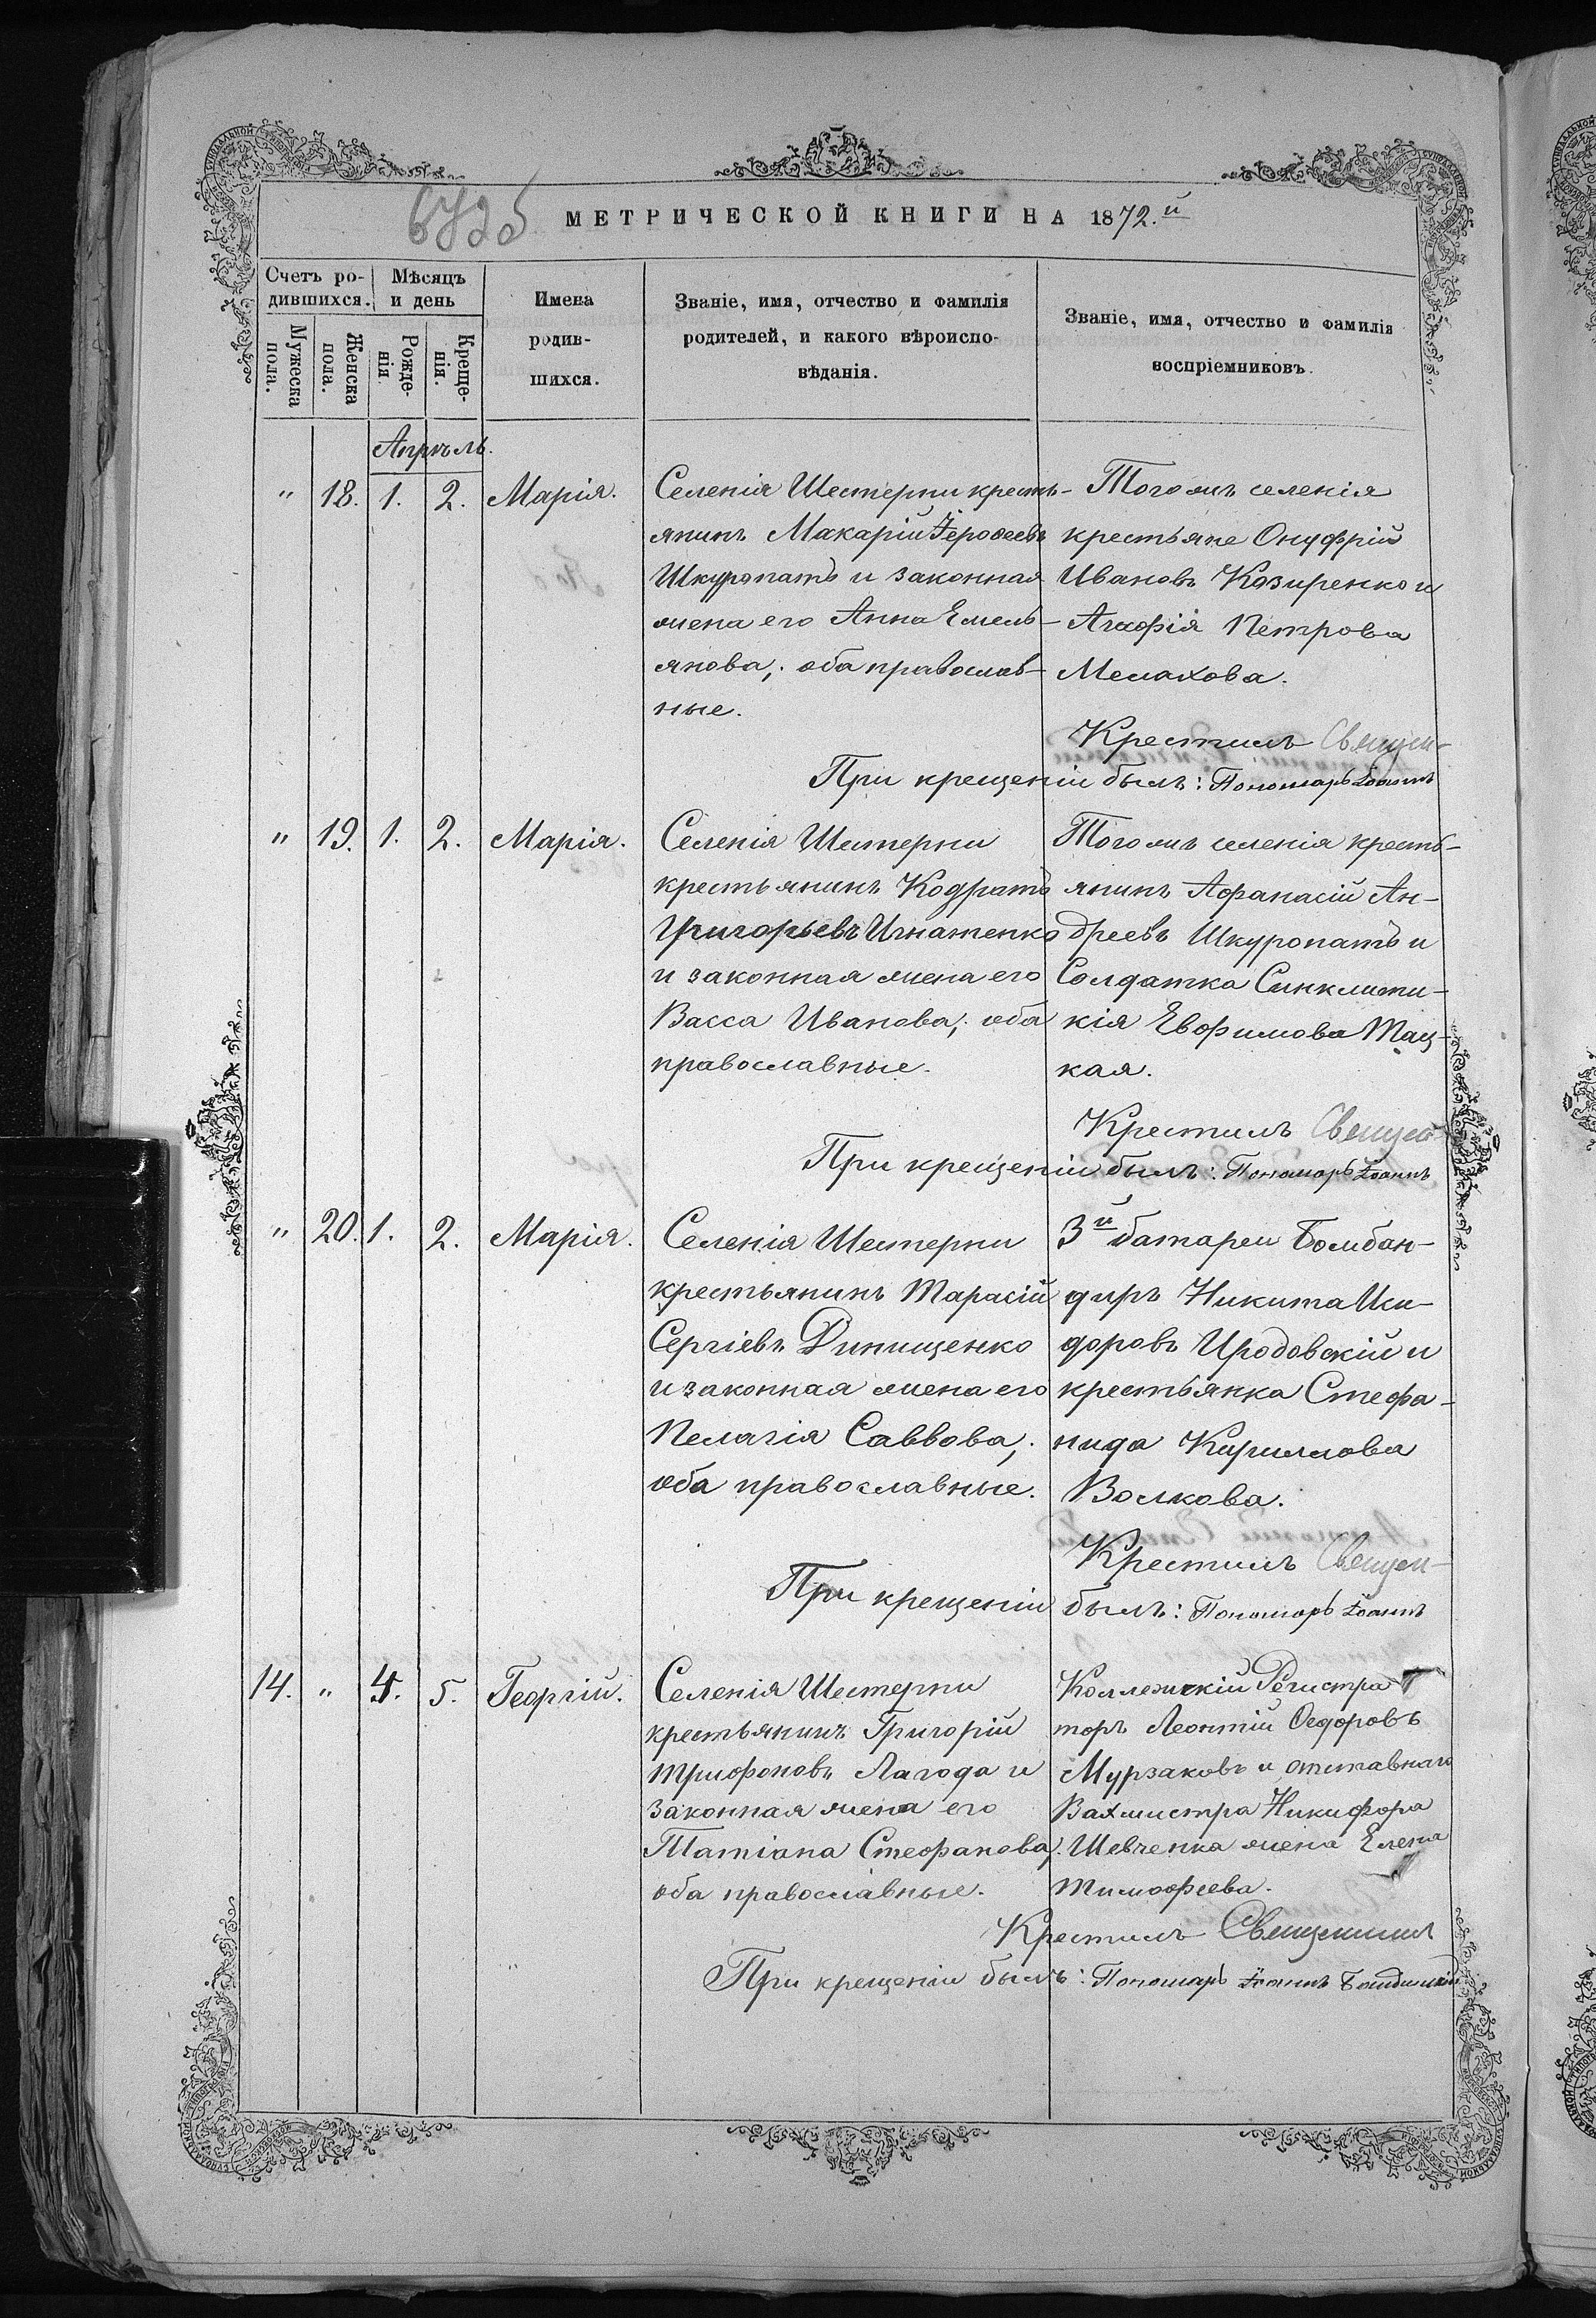 МЕТРИЧЕСКОЙ КНИГИ НА 1872.й
Счетъ ро-
дившихся.
Мѣсяцъ
и день
Мужеска
пола.
Женска
пола.
Рожде-
нія
Креще-
нія.
Имена
родив-
шихся.
Званіе, имя, отчество и фамилія
родителей, и какого вѣроиспо-
вѣданія.
Званіе, имя, отчество и фамилія
воспріемниковъ.
Апрѣль.
" 18. 1. 2. Марія.
Селенія Шестерни кресть-
янинъ Макарій Іерофеевъ
Шкуропатъ и законная
жена его Анна Емель-
янова; оба православ-
ные.
Тогожъ селенія
крестьяне Онуфрій
Ивановъ Козиренко и
Агафія Петрова
Мелахова.
Крестилъ Священ-
При крещеніи былъ: Пономарь Іоаннъ
" 19. 1. 2. Марія.
Селенія Шестерни
крестьянинъ Кодратъ
Григорьевъ Игнатенко
и законная жена его
Васса Иванова; оба
православные.
Тогожъ селенія кресть-
янинъ Афанасій Ан-
дреевъ Шкуропатъ и
Солдатка Синклити-
кія Евфимова Тац-
кая.
Крестилъ Священ-
При крещеніи былъ: Пономарь Іоаннъ
" 20. 1. 2. Марія.
Селенія Шестерни
крестьянинъ Тарасій
Сергіевъ Динищенко
и законная жена его
Пелагія Саввова;
оба православные.
3й батареи Бомбан-
диръ Никита Иси-
доровъ Иродовскій и
крестьянка Стефа-
нида Кириллова
Волкова.
Крестилъ Священ-
При крещеніи былъ: Пономарь Іоаннъ
14. " 4. 5. Георгій.
Селенія Шестерни
крестьянинъ Григорій
Трифоновъ Лагода и
законная жена его
Татіана Стефанова;
оба православные.
Коллежскій Регистра
торъ Леонтій Ѳедоровъ
Мурзаковъ и отставнаго
Вахмистра Никифора
Шевченка жена Елена
Тимофеева.
Крестилъ Священникъ
При крещеніи былъ: Пономарь Іоаннъ